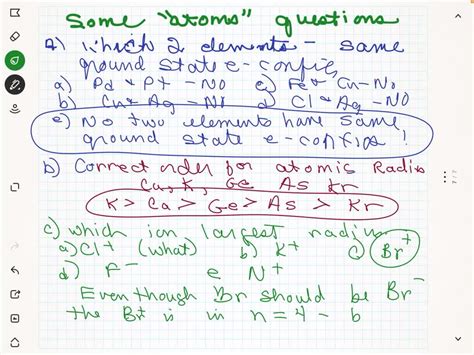 Some "atoms" questions
a) Which 2 elements - same
ground state e- configs
a) Pd & Pt - NO c) Fe & Cu - No
b) Cu & Ag - NO d) Cl & Ag - NO
e) No two elements have same
ground state e- configs!
b) Correct order for atomis Radio
Ca, K, Ge As Kr
K > Ca > Ge > As > Kr
c) which ion largest radius
a) Cl+ (what) b) K+ c) Br+
d) F- e N+
Even though Br should be Br-
the Br+ is in n = 4 - b